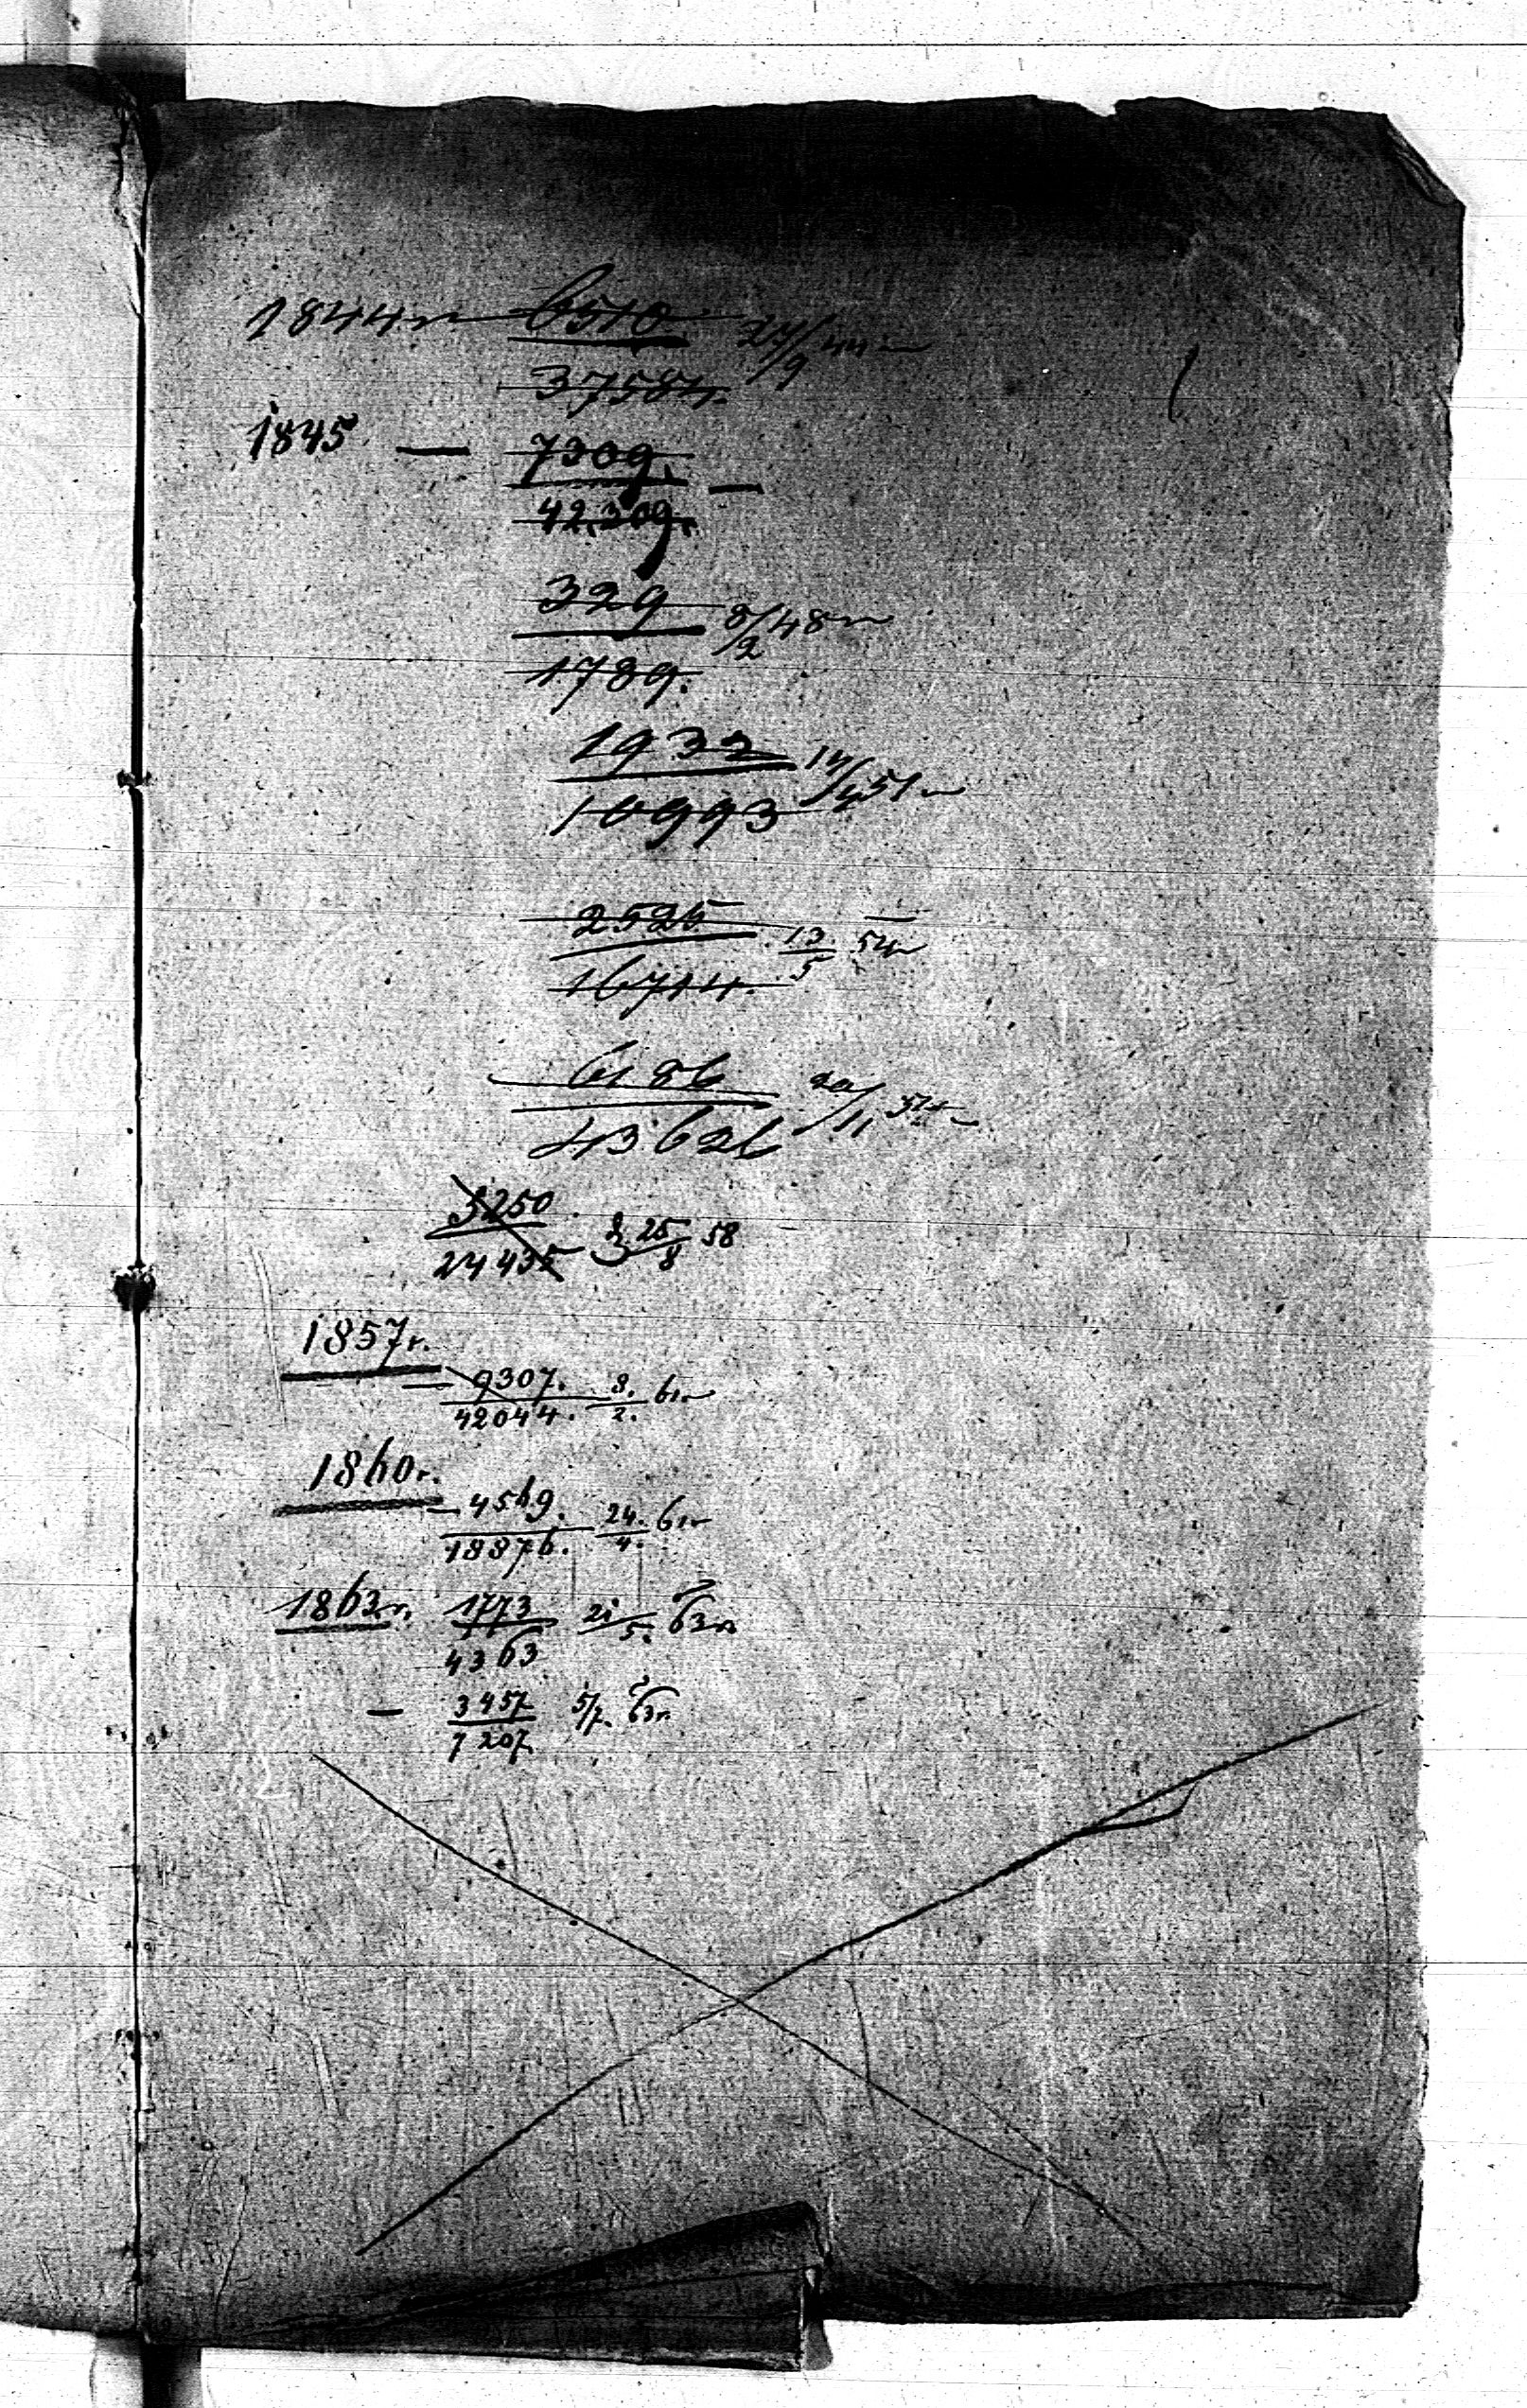 1844 г 6510 27/9 44 г
37584.
1845 — 7309. —
42,309.
329 8/2 48 г
1789.
1932 14/4 51 г
10993
2525 13/5 54 г
16714.
6186 20/11 54 г
43626
3250. 25/8 58
24435
1857 г.
— 9307. 8./2. 61 г
42044.
1860 г.
— 4569. 24./4. 61 г
18876.
1862 г. 1773 21/5. 63 г
4363
— 3457 5/7. 63 г.
7207.